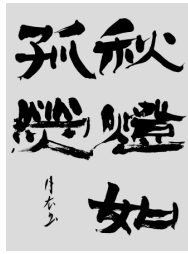 秋燈如
孤螢